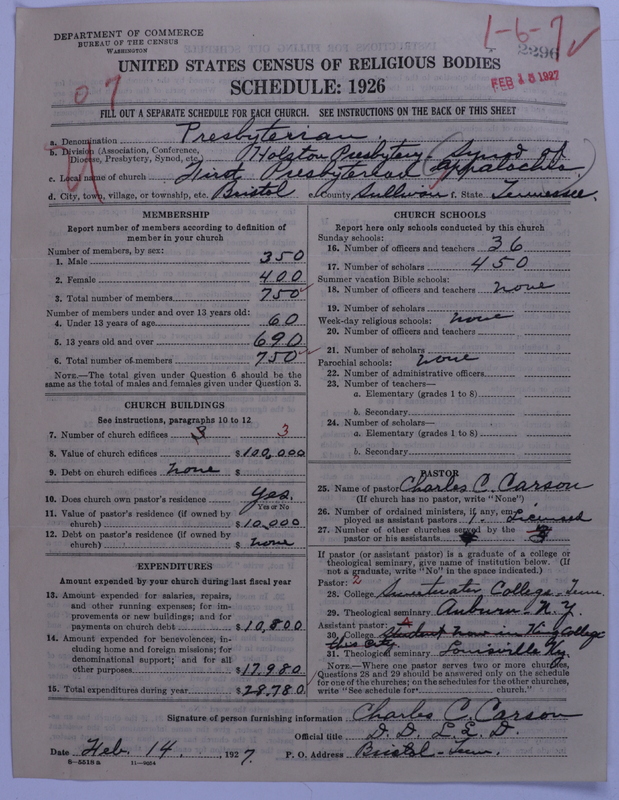 DEPARTMENT OF COMMERCE
BUREAU OF THE CENSUS
WASHINGTON
1-6-7 ✓
2296
FEB 15 1927
UNITED STATES CENSUS OF RELIGIOUS BODIES
SCHEDULE: 1926
07
FILL OUT A SEPARATE SCHEDULE FOR EACH CHURCH. SEE INSTRUCTIONS ON THE BACK OF THIS SHEET
a. Denomination Presbyterian.
b. Division (Association, Conference, Diocese, Presbytery, Synod, etc.) Holston Presbytery (Synod of Appalachia)
c. Local name of church First Presbyterian
d. City, town, village, or township, etc. Bristol e. County Sullivan f. State Tennessee.
MEMBERSHIP
Report number of members according to definition of
member in your church
Number of members, by sex:
1. Male 350
2. Female 400
3. Total number of members 750 ✓
Number of members under and over 13 years old:
4. Under 13 years of age 60
5. 13 years old and over 690
6. Total number of members 750 ✓
NOTE.—The total given under Question 6 should be
same as the total of males and females given under Question 3.
CHURCH BUILDINGS
See instructions, paragraphs 10 to 12
7. Number of church edifices 3 3
8. Value of church edifices $100,000
9. Debt on church edifices none $
10. Does church own pastor's residence Yes.
Yes or No
11. Value of pastor's residence (if owned by
church) $10,000
12. Debt on pastor's residence (if owned by
church) $ none
EXPENDITURES
Amount expended by your church during last fiscal year
13. Amount expended for salaries, repairs,
and other running expenses; for im-
provements or new buildings; and for
payments on church debt $10,800
14. Amount expended for benevolences, in-
cluding home and foreign missions; for
denominational support; and for all
other purposes $17,980
15. Total expenditures during year $28,780
CHURCH SCHOOLS
Report here only schools conducted by this church
Sunday schools:
16. Number of officers and teachers 36
17. Number of scholars 450
Summer vacation Bible schools:
18. Number of officers and teachers none
19. Number of scholars
Week-day religious schools: none
20. Number of officers and teachers
21. Number of scholars
Parochial schools: none
22. Number of administrative officers
23. Number of teachers—
a. Elementary (grades 1 to 8)
b. Secondary
24. Number of scholars—
a. Elementary (grades 1 to 8)
b. Secondary
PASTOR
25. Name of pastor Charles C. Carson
(If church has no pastor, write "None")
26. Number of ordained ministers, if any, em-
ployed as assistant pastors 1. Licensed
27. Number of other churches served by the
pastor or his assistants 3
If pastor (or assistant pastor) is a graduate of a college or
theological seminary, give name of institution below. (If
not a graduate, write "No" in the space indicated.)
Pastor: 2
28. College Sweetwater College - Tenn.
29. Theological seminary Auburn N.Y.
Assistant pastor:
30. College Student now in King College
this City.
31. Theological seminary Louisville Ky.
NOTE.—Where one pastor serves two or more churches,
Questions 28 and 29 should be answered only on the schedule
for one of the churches; on the schedules for the other churches,
write "See schedule for church."
Signature of person furnishing information Charles C. Carson
Official title D. D. L.L. D.
Date Feb. 14, 1927. P. O. Address Bristol - Tenn.
8-5518 a 11-9024